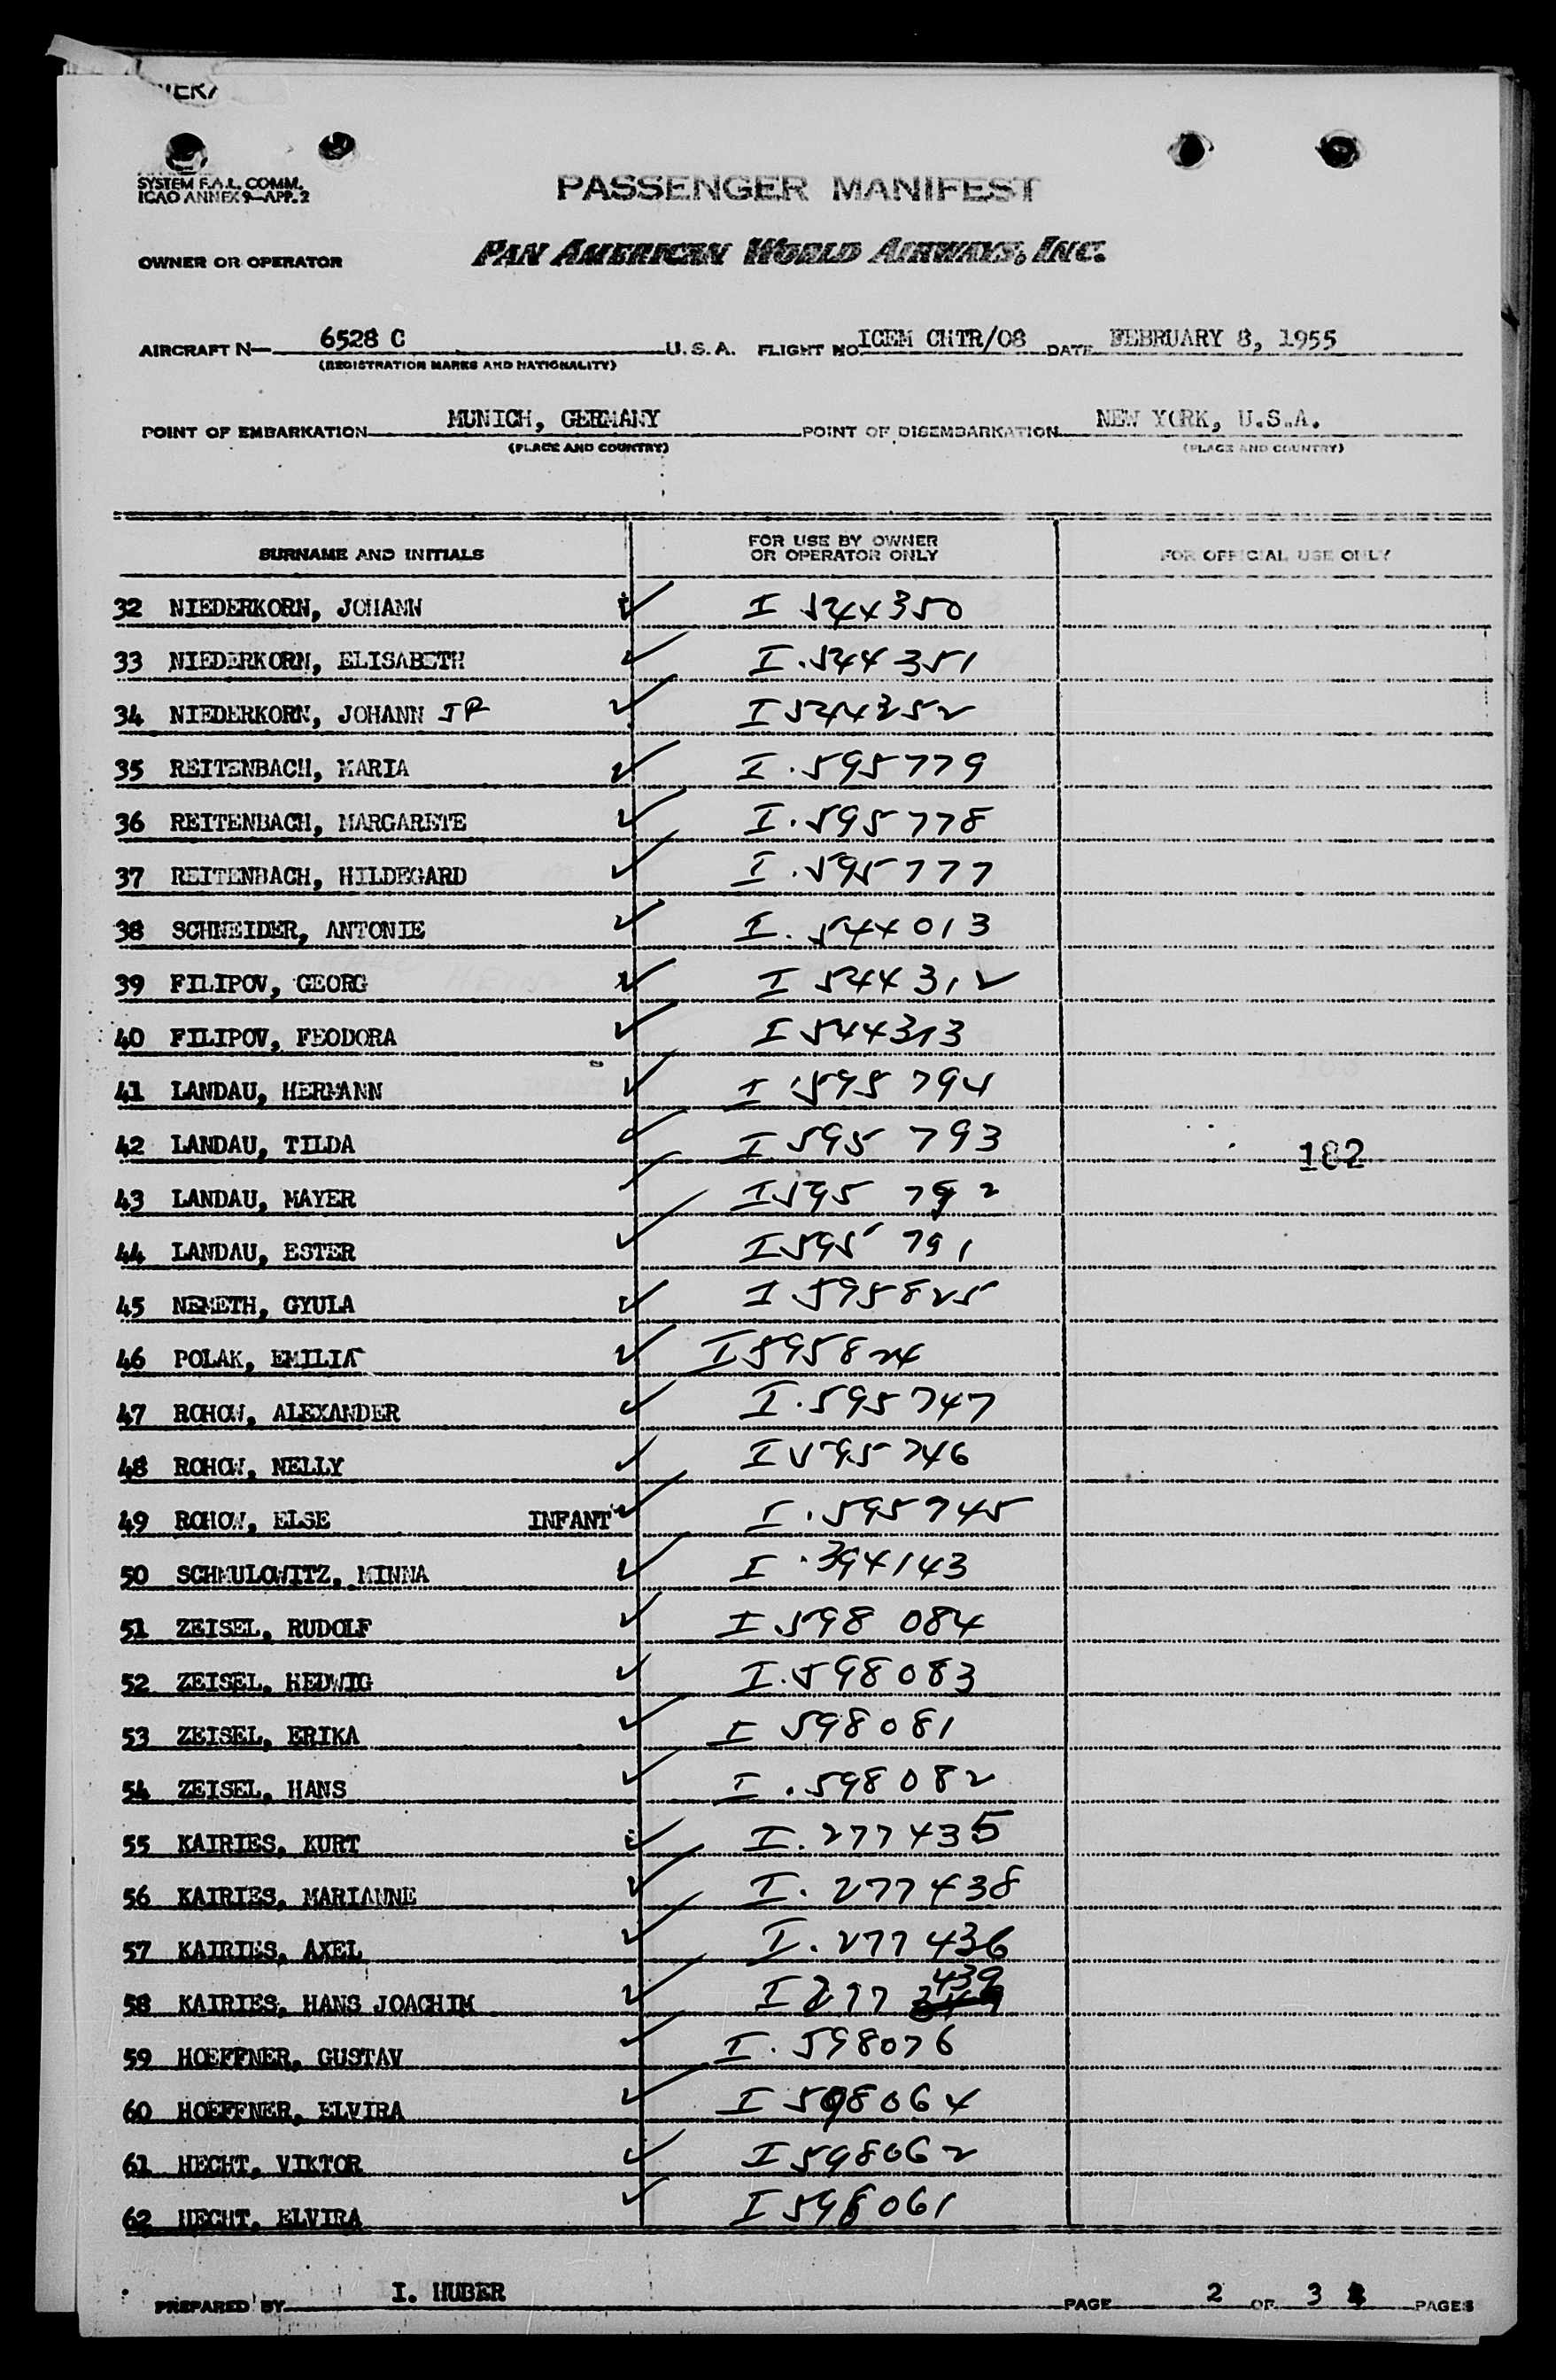 SYSTEM F.A.L. COMM.
ICAO ANNEX 9—APP. 2
PASSENGER MANIFEST
OWNER OR OPERATOR PAN AMERICAN WORLD AIRWAYS, INC.
AIRCRAFT N— 6528 C U.S.A. FLIGHT NO ICEM CHTR/08 DATE FEBRUARY 8, 1955
(REGISTRATION MARKS AND NATIONALITY)
POINT OF EMBARKATION MUNICH, GERMANY POINT OF DISEMBARKATION NEW YORK, U.S.A.
(PLACE AND COUNTRY) (PLACE AND COUNTRY)
SURNAME AND INITIALS FOR USE BY OWNER OR OPERATOR ONLY FOR OFFICIAL USE ONLY
32 NIEDERKORN, JOHANN ✓ I 544350
33 NIEDERKORN, ELISABETH ✓ I.544351
34 NIEDERKORN, JOHANN JR ✓ I 544352
35 REITENBACH, MARIA ✓ I.595779
36 REITENBACH, MARGARETE ✓ I.595778
37 REITENBACH, HILDEGARD ✓ I.595777
38 SCHNEIDER, ANTONIE ✓ I.544013
39 FILIPOV, GEORG ✓ I 544312
40 FILIPOV, FEODORA ✓ I 544313
41 LANDAU, HERMANN ✓ I 595794
42 LANDAU, TILDA ✓ I 595 793 182
43 LANDAU, MAYER ✓ I 595 792
44 LANDAU, ESTER ✓ I 595 791
45 NEMETH, GYULA ✓ I 595825
46 POLAK, EMILIA ✓ I 595824
47 ROHOW, ALEXANDER ✓ I.595747
48 ROHOW, NELLY ✓ I 595746
49 ROHOW, ELSE INFANT ✓ I.595745
50 SCHMULOWITZ, MINNA ✓ I.394143
51 ZEISEL, RUDOLF ✓ I 598 084
52 ZEISEL, HEDWIG ✓ I.598083
53 ZEISEL, ERIKA ✓ I 598081
54 ZEISEL, HANS ✓ I.598082
55 KAIRIES, KURT ✓ I.277435
56 KAIRIES, MARIANNE ✓ I.277438
57 KAIRIES, AXEL ✓ I.277436
58 KAIRIES, HANS JOACHIM ✓ I 277 439
59 HOEFFNER, GUSTAV ✓ I.598076
60 HOEFFNER, ELVIRA ✓ I 598064
61 HECHT, VIKTOR ✓ I 598062
62 HECHT, ELVIRA ✓ I 598061
PREPARED BY I. HUBER PAGE 2 OF 3 PAGES